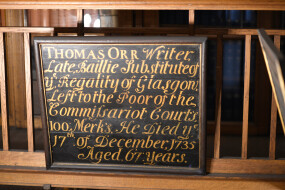 THOMAS ORR Writer,
Late Baillie Substitute of
yͤ Regality of Glasgow
Left to the Poor of the
Commissariot Court
100 Merks, He Died yͤ
17th of December, 1735
Aged 67 Years.